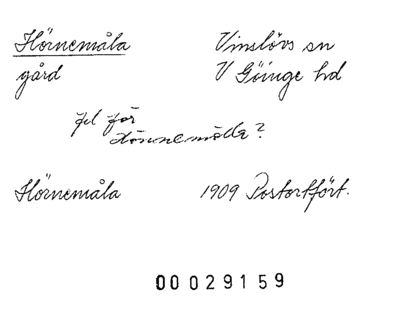 Hörnemåla Vinslövs sn
gård V Göinge hd
fel för
Hönnemölla?
Hörnemåla 1909 Postortfört.
00029159